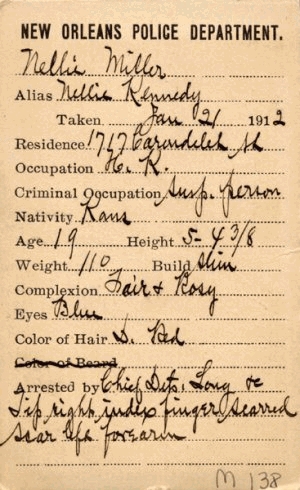 NEW ORLEANS POLICE DEPARTMENT.
Nellie Miller
Alias Nellie Kennedy
Taken Jan 21 1912
Residence 1717 Carondelet St
Occupation H. K.
Criminal Occupation Susp. person
Nativity Kans
Age 19 Height 5-4 3/8
Weight 110 Build Slim
Complexion Fair & Rosy
Eyes Blue
Color of Hair D. Red
Color of Beard
Arrested by Chief Dets. Long &c
Tip right index finger scarred
scar left forearm
M 138